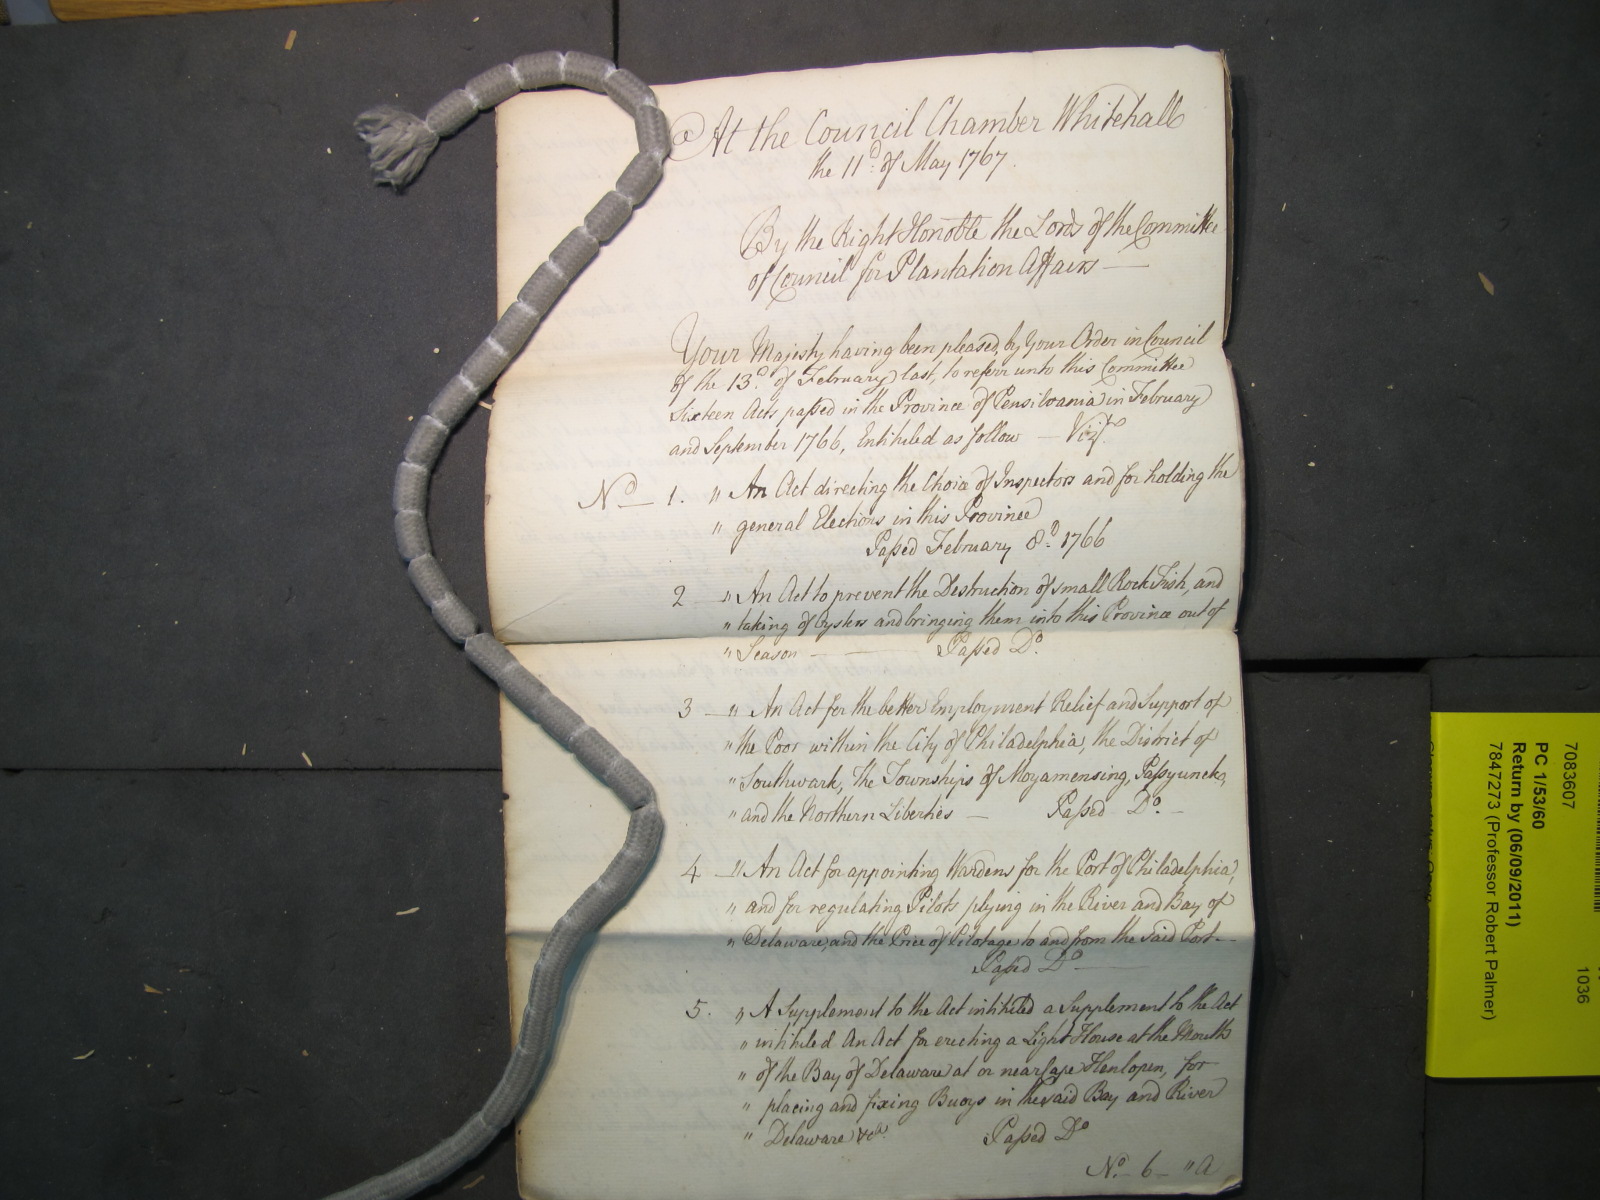 At the Council Chamber Whitehall
the 11.th of May 1767.
By the Right Honoble the Lords of the Committee
of Council for Plantation Affairs —
Your Majesty having been pleased, by Your Order in Council
of the 13.th of February last, to referr unto this Committee
Sixteen Acts passed in the Province of Pensilvania in February
and September 1766, Entituled as follow — Vizt.
No. — 1. " An Act directing the Choice of Inspectors and for holding the
" general Elections in this Province
Passed February 8.th 1766
2 " An Act to prevent the Destruction of small Rock Fish, and
" taking of Oysters and bringing them into this Province out of
" Season — — Passed Do.
3 — " An Act for the better Employment Relief and Support of
" the Poor within the City of Philadelphia, the District of
" Southwark, the Townships of Moyamensing, Passyunck,
" and the Northern Liberties — Passed Do. —
4 — " An Act for appointing Wardens for the Port of Philadelphia,
" and for regulating Pilots plying in the River and Bay of
" Delaware, and the Price of Pilotage to and from the said Port —
Passed Do —
5. " A Supplement to the Act intituled a Supplement to the Act
" intituled An Act for erecting a Light House at the Mouth
" of the Bay of Delaware at or near Cape Henlopen, for
" placing and fixing Buoys in the said Bay and River
" Delaware &ca. Passed Do
No. 6 — " A
7083607 1036
PC 1/53/60
Return by (06/09/2011)
7847273 (Professor Robert Palmer)